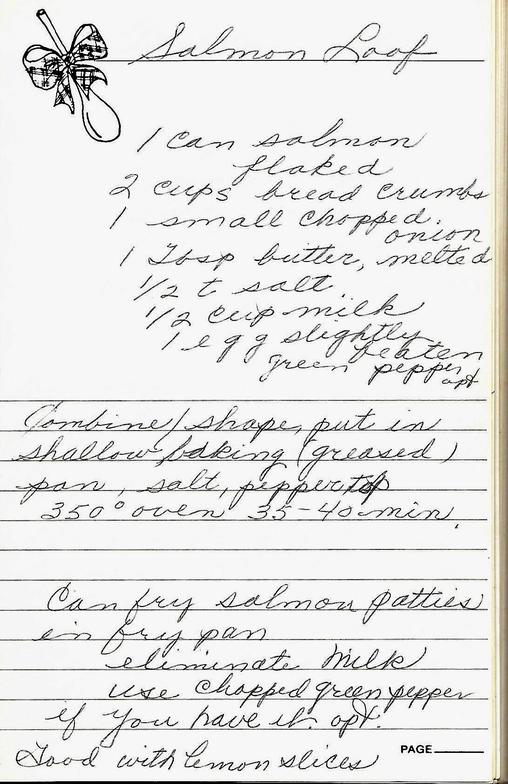 Salmon Loaf
1 can salmon
flaked
2 cups bread crumbs
1 small chopped
onion
1 Tbsp butter, melted
1/2 t salt
1/2 cup milk
1 egg slightly
beaten
green pepper
opt
Combine/shape, put in
shallow baking (greased)
pan, salt, pepper top
350° oven 35-40 min.
Can fry salmon patties
in fry pan
eliminate milk
use chopped green pepper
if you have it. opt.
Good with lemon slices
PAGE